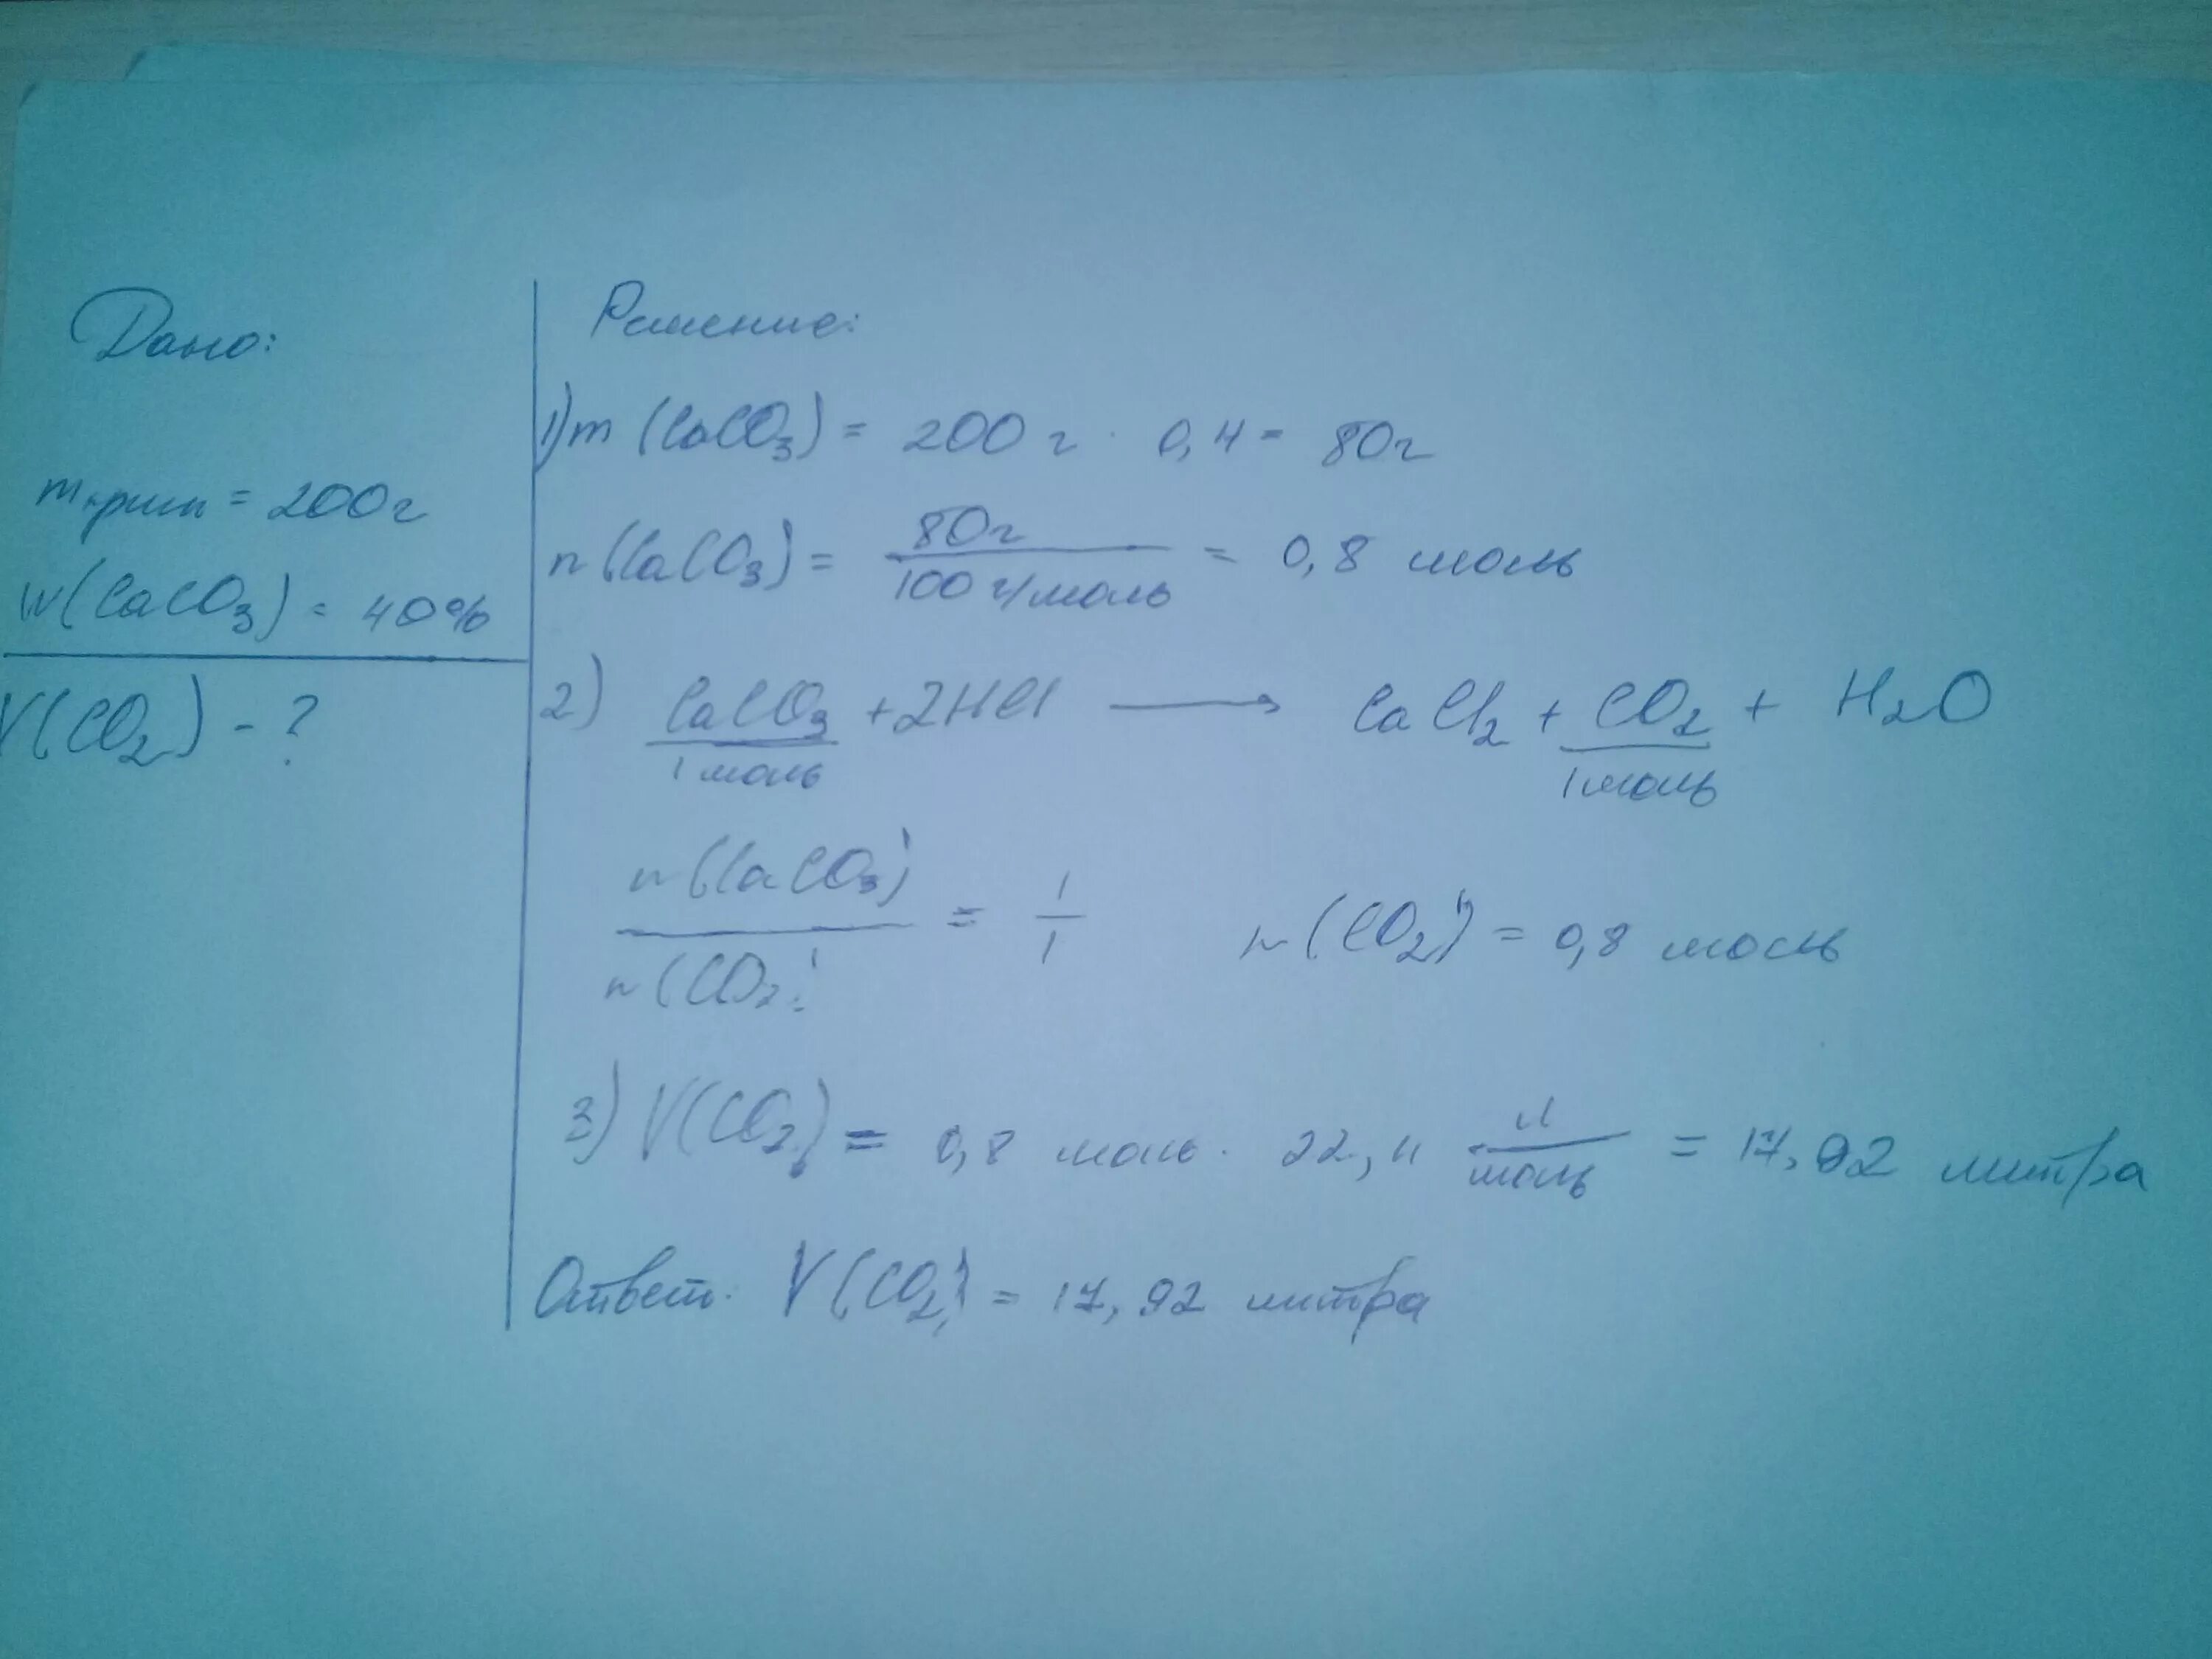 Дано:
m прим = 200г
w(CaCO3) = 40%
V(CO2) - ?
Решение:
1) m (CaCO3) = 200 г · 0,4 = 80г
n (CaCO3) = 80г / 100 г/моль = 0,8 моль
2) CaCO3 + 2HCl → CaCl2 + CO2 + H2O
1 моль 1 моль
n(CaCO3) / n(CO2) = 1/1 n(CO2) = 0,8 моль
3) V(CO2) = 0,8 моль · 22,4 л/моль = 17,92 литра
Ответ: V(CO2) = 17,92 литра